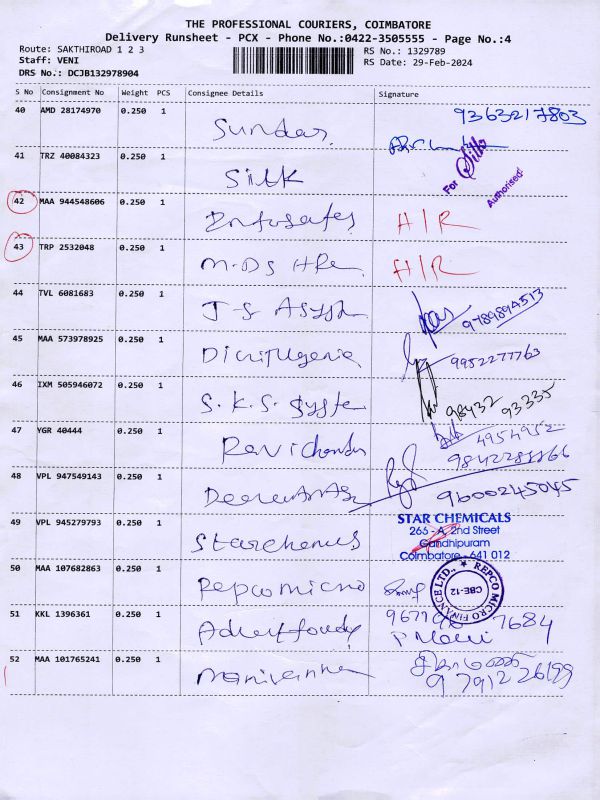 THE PROFESSIONAL COURIERS, COIMBATORE
Delivery Runsheet - PCX - Phone No.:0422-3505555 - Page No.:4
Route: SAKTHIROAD 1 2 3 RS No.: 1329789
Staff: VENI RS Date: 29-Feb-2024
DRS No.: DCJB132978904
S No Consignment No Weight PCS Consignee Details Signature
40 AMD 28174970 0.250 1 Sundar 9363217803
41 TRZ 40084323 0.250 1 Silk For Silk Authorised
42 MAA 944548606 0.250 1 A/R
43 TRP 2532048 0.250 1 A/R
44 TVL 6081683 0.250 1 9789894513
45 MAA 573978925 0.250 1 9952277763
46 IXM 505946072 0.250 1 S.K.S. Syste 98432 93335
47 YGR 40444 0.250 1 Ravichandr 4954952
9842281166
48 VPL 947549143 0.250 1 9600245045
49 VPL 945279793 0.250 1 Starchemics STAR CHEMICALS
266 - A, 2nd Street
Gandhipuram
Coimbatore - 641 012
50 MAA 107682863 0.250 1 Repco micro REPCO MICRO FINANCE LTD., CBE-12
51 KKL 1396361 0.250 1 7684
52 MAA 101765241 0.250 1 Manivanna 9791226199